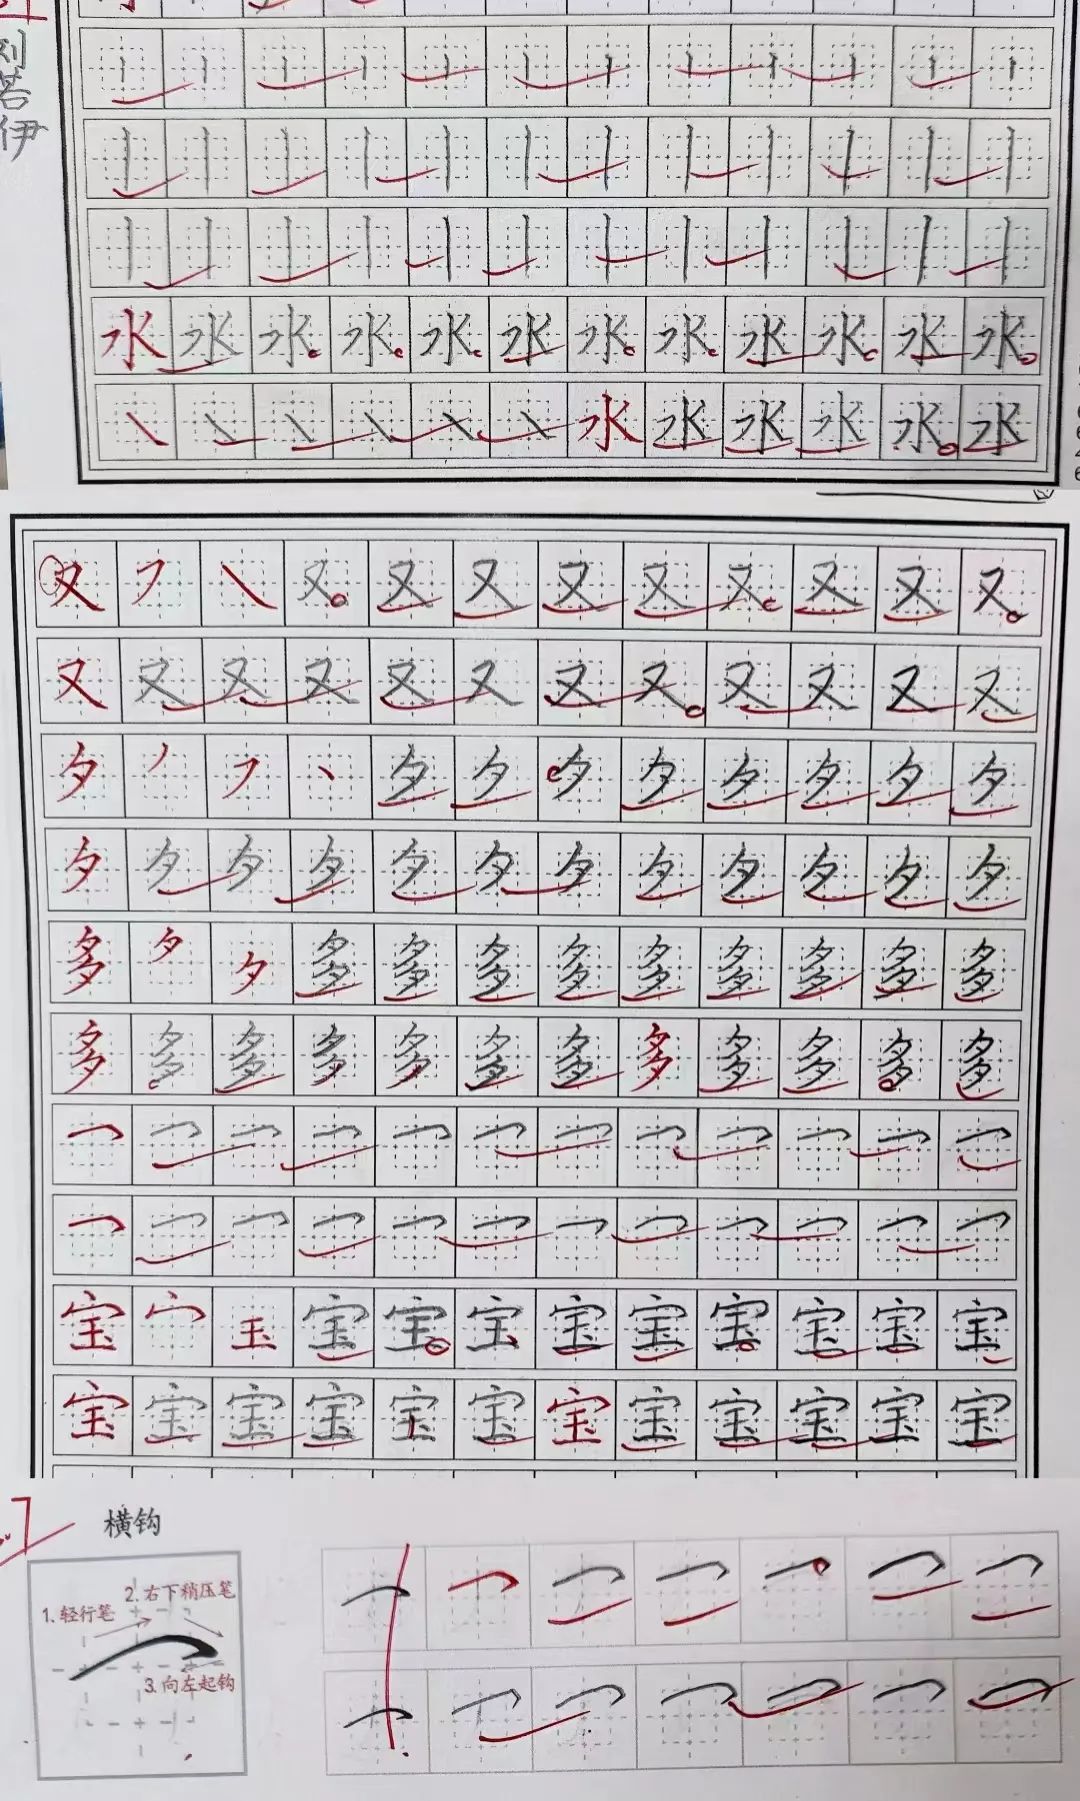 刘若伊
水水水水水水水水水水水水
水水水水水水
又又又又又又又又又又
又又又又又又又又又又又又
夕夕夕夕夕夕夕夕夕
夕夕夕夕夕夕夕夕夕夕夕夕
多夕夕多多多多多多多多多
多多多多多多多多多多多多
宝宀玉宝宝宝宝宝宝宝宝宝
宝宝宝宝宝宝宝宝宝宝宝宝
横钩
2.右下稍压笔
1.轻行笔
3.向左起钩